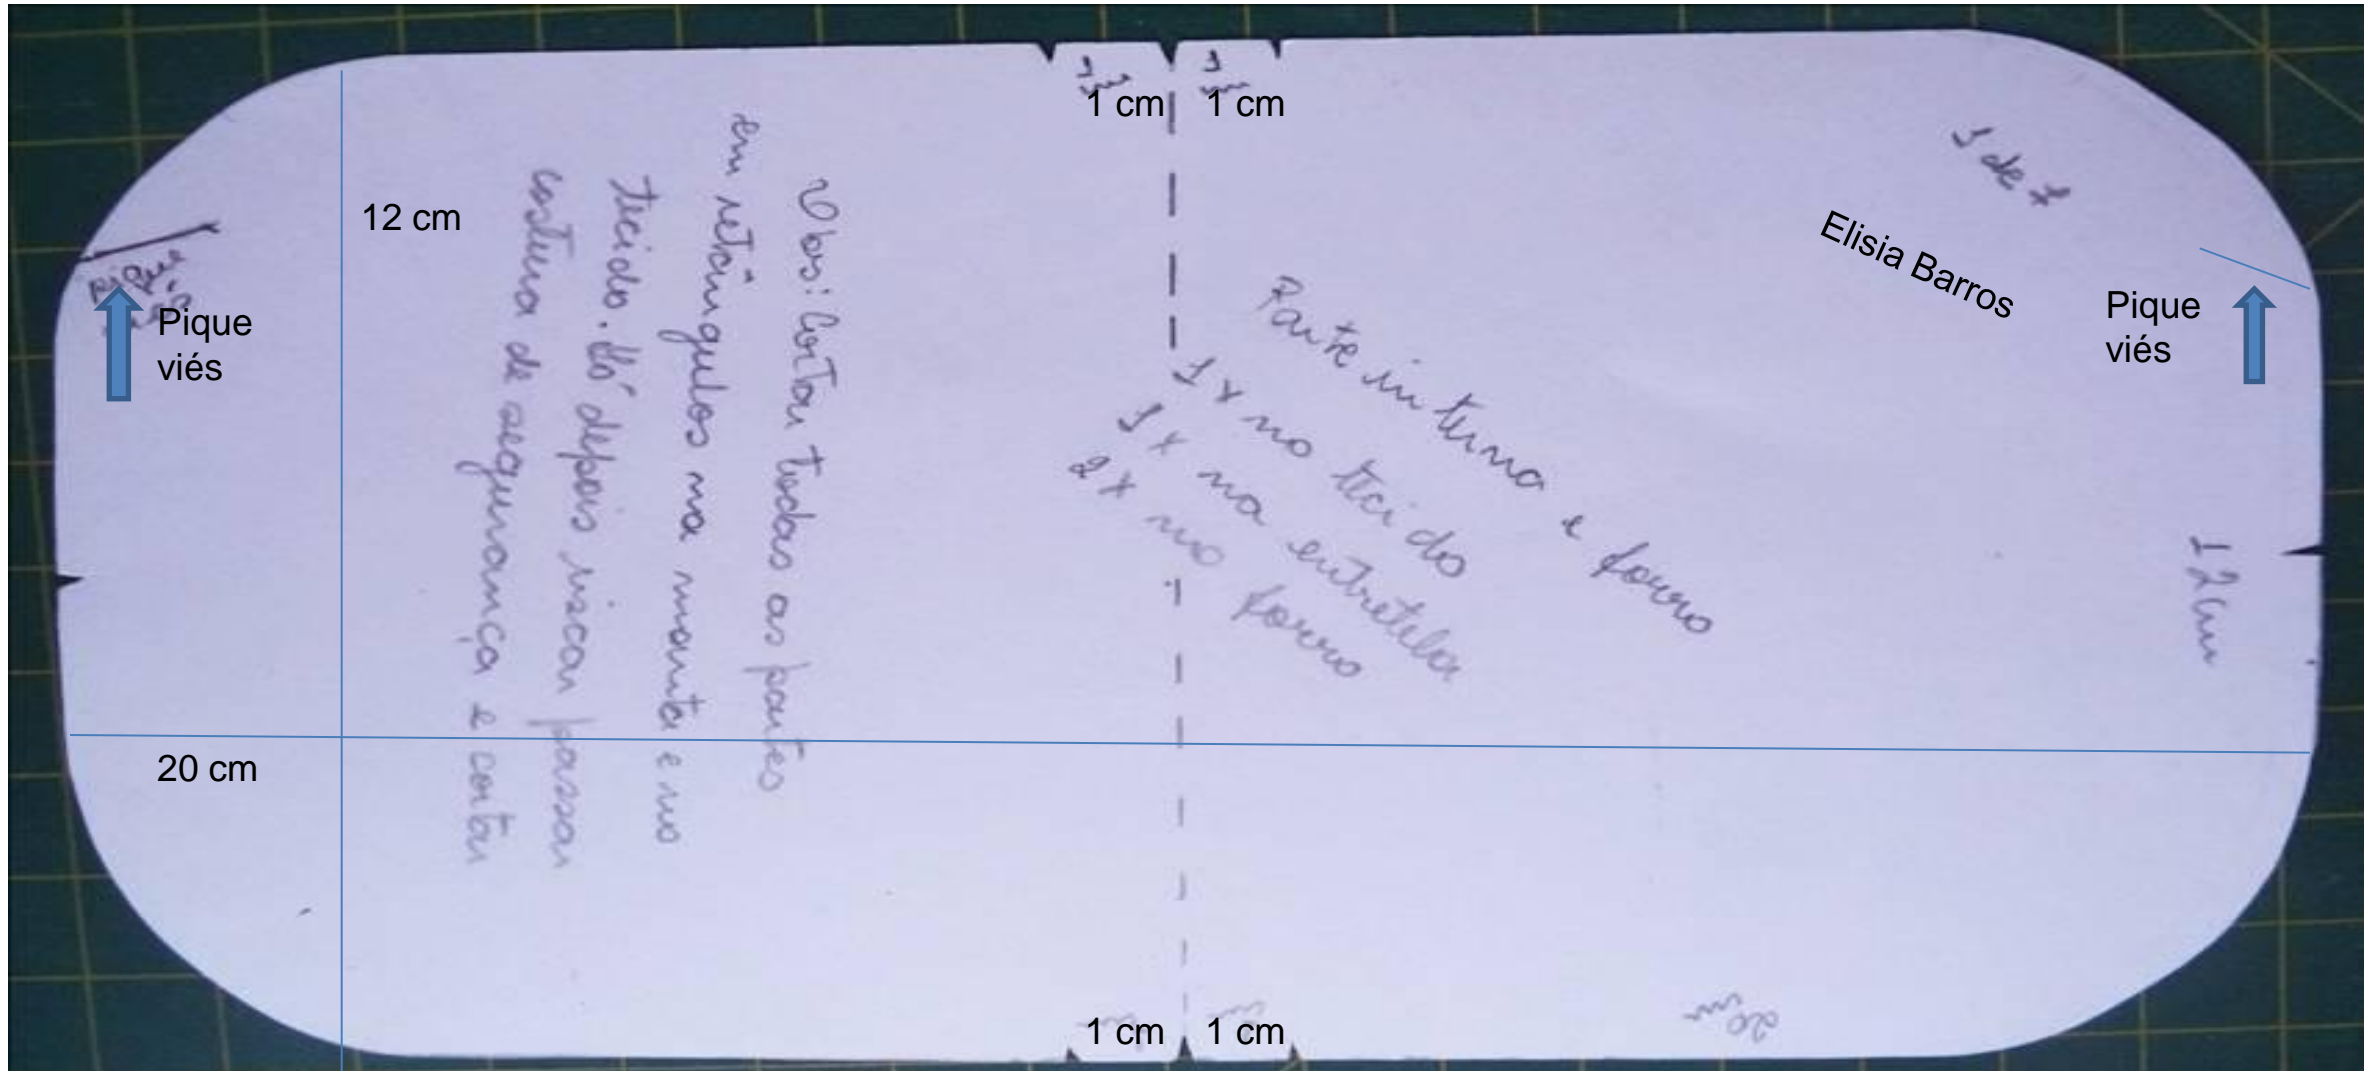 1 cm
1 cm
1 de 7
12 cm
Elisia Barros
Pique
viés
Pique
viés
Obs: Cortar todas as partes
em retângulos na manta e no
tecido. Só depois riscar passar
costura de segurança e cortar
Parte interna e forro
1x no tecido
1x na entretela
2x no forro
12cm
20 cm
1 cm
1 cm
20cm